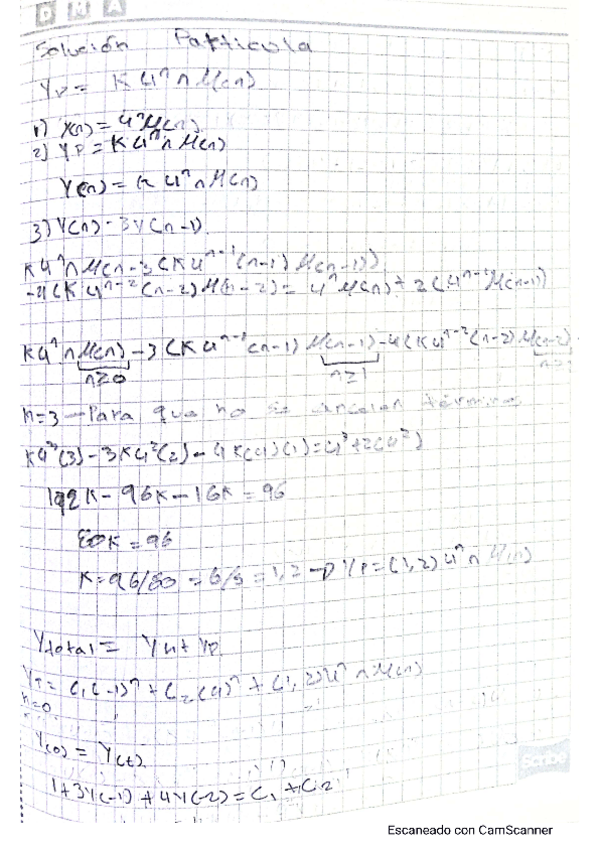 D M A
Solución Particula
Yp = K 4ⁿ n μ(n)
1) X(n) = 4ⁿ μ(n)
2) Yp = K 4ⁿ n μ(n)
Y(n) = K 4ⁿ n μ(n)
3) Y(n) - 3Y(n-1)
K4ⁿ n μ(n - 3(K4ⁿ⁻¹(n-1) μ(n-1))
-4(K 4ⁿ⁻²(n-2) μ(n-2) = 4ⁿ μ(n) + 2(4ⁿ⁻¹ μ(n-1))
K4ⁿ n μ(n) - 3(K4ⁿ⁻¹(n-1) μ(n-1) - 4(K4ⁿ⁻²(n-2) μ(n-2)
n≥0 n≥1
n=3 → Para que no se cancelen términos
K4³(3) - 3K4²(2) - 4K(4)(1) = 4³ + 2(4²)
192K - 96K - 16K = 96
80K = 96
K = 96/80 = 6/5 = 1,2 → Yp = (1,2) 4ⁿ n μ(n)
Ytotal = Yh + Yp
YT = C₁(-1)ⁿ + C₂(4)ⁿ + (1,2)4ⁿ n μ(n)
n=0
Y(0) = Y(t)
1+3Y(-1) + 4Y(-2) = C₁ + C₂
Scribe
Escaneado con CamScanner